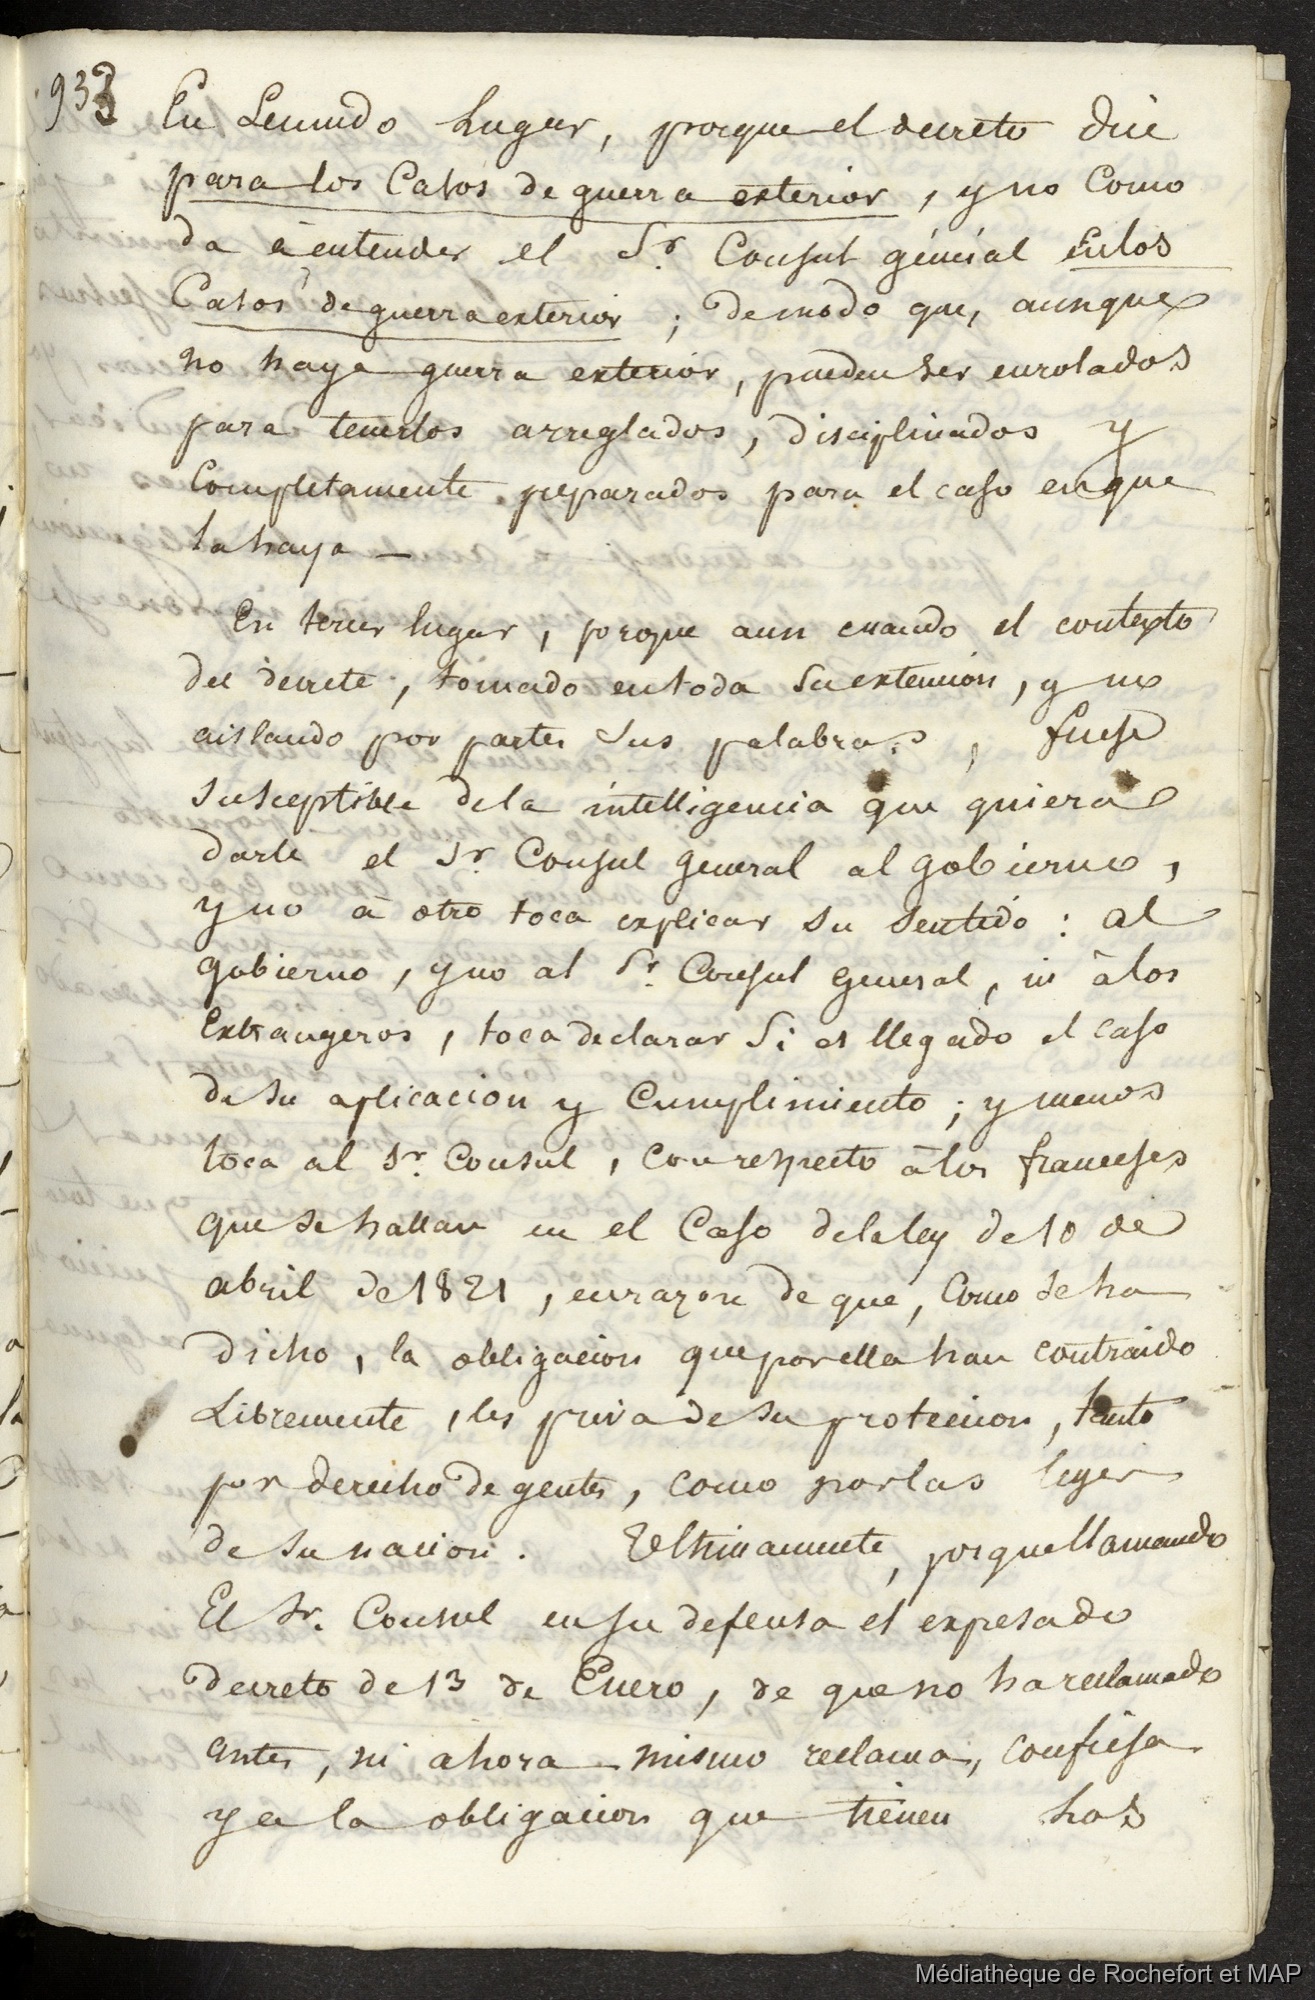 933
En Secundo Lugar, porque el decreto dice
para los Casos de guerra exterior, y no Como
da à entender el Sr. Consul général en los
Casos de guerra exterior; de modo que, aunque
no haya guerra exterior, pueden ser enrolados
para tenerlos arreglados, disciplinados y
Completamente preparados para el caso en que
la haya —
En tercer lugar, porque aun cuando el contexto
del decreto, tomado en toda Su extencion, y no
aislando por partes Sus palabras, fuese
susceptible de la intelligencia que quiera
darle el Sr. Consul general al gobierno,
y no à otro toca explicar Su Sentido: al
gobierno, y no al Sr. Consul general, ni à los
Extrangeros, toca declarar Si es llegado el caso
de Su aplicacion y Cumplimiento; y menos
toca al Sr. Consul, con respecto à los franceses
que se hallan en el Caso de la ley de 10 de
abril de 1821, en razon de que, Como Se ha
dicho, la obligacion que por ella han contraido
Libremente, les priva de Su proteccion, tanto
por derecho de gentes, como por las leyes
de Su nacion. Ultimamente, porque llamando
El Sr. Consul en Su defensa el expesado
decreto de 13 de Enero, de que no ha reclamado
antes, ni ahora mismo reclama, confiesa
ya la obligacion que tienen hos
Médiathèque de Rochefort et MAP